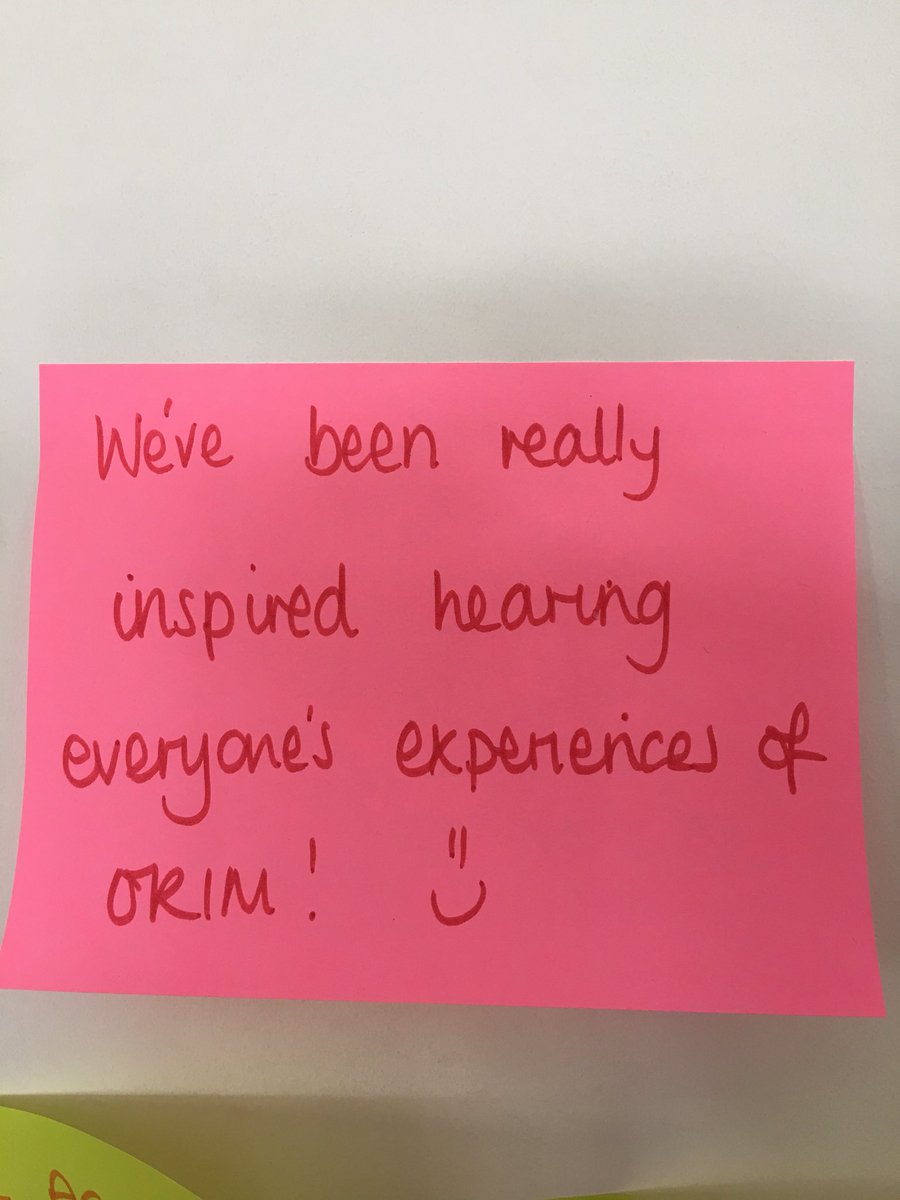 We've been really
inspired hearing
everyone's experiences of
ORIM! :)